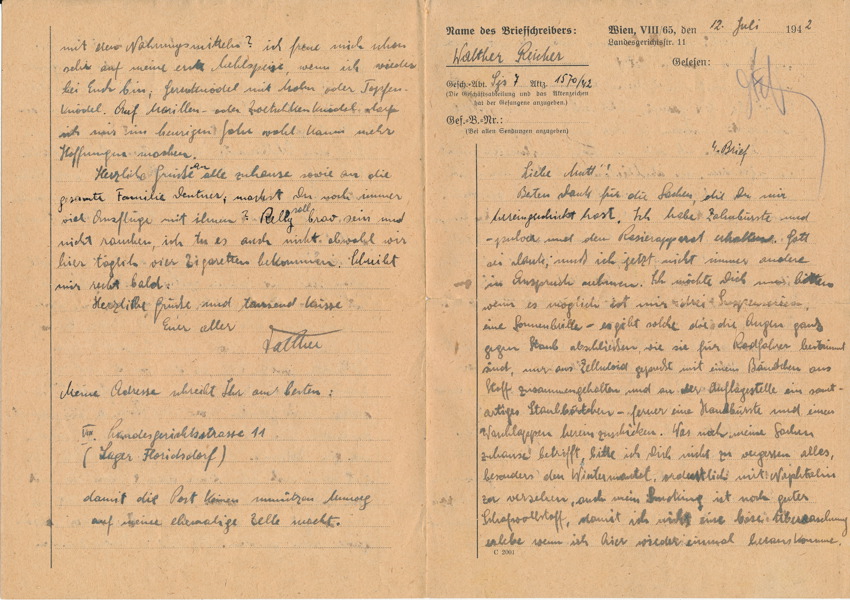 Name des Briefschreibers:
Walther Reicher
Gesch.-Abt. Sg 7 Aktz. 1570/42
(Die Geschäftsabteilung und das Aktenzeichen
hat der Gefangene anzugeben.)
Gef.-B.-Nr.:
(Bei allen Sendungen anzugeben)
Wien, VIII/65, den 12. Juli 1942
Landesgerichtsstr. 11
Gelesen:
4. Brief
Liebe Mutti!
Besten Dank für die Sachen, die Du mir
hereingeschickt hast. Ich habe Zahnbürste und
-pulver und den Rasierapparat erhalten. Gott
sei Dank, muß ich jetzt nicht immer andere
in Anspruch nehmen. Ich möchte Dich nur bitten
wenn es möglich ist mir drei
eine Sonnenbrille - es gibt solche die die Augen ganz
gegen Staub abschließen, wie sie für Radfahrer bestimmt
sind, nur aus Zelluloid gemacht mit einem Bändchen aus
Stoff zusammengehalten und an der Auflagestelle ein samt-
artiges - ferner eine Handbürste und einen
Waschlappen hereinzuschicken. Was noch meine Sachen
zuhause betrifft, bitte ich Dich nicht zu vergessen alles,
besonders den Wintermantel, ordentlich mit Naphtalin
zu versehen, auch mein Smoking ist noch guter
Schafwollstoff, damit ich nicht eine böse Überraschung
erlebe wenn ich hier wieder einmal herauskomme.
C 2001
mit den Nahrungsmitteln? ich freue mich schon
sehr auf meine erste Mehlspeise, wenn ich wieder
bei Euch bin; mit Mohn oder Topfen-
knödel. Auf Marillen- oder Zwetschkenknödel darf
ich mir im heurigen Jahr wohl kaum mehr
Hoffnungen machen.
Herzliche Grüße an alle zuhause sowie an die
gesamte Familie Dentner; machst Du noch immer
viel Ausflüge mit ihnen? soll brav sein und
nicht rauchen, ich tu es auch nicht obwohl wir
hier täglich vier Zigaretten bekommen. Schreibt
mir recht bald.
Herzliche Grüße und tausend Küsse
Euer aller
Walther
Meine Adresse schreibt Ihr am besten:
VIII. Landesgerichtsstrasse 11
(Lager Floridsdorf)
damit die Post keinen unnützen Umweg
auf meine ehemalige Zelle macht.